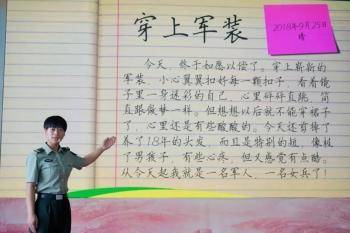 穿上军装
2018年9月25日
晴
今天，终于如愿以偿了。穿上崭新的
军装，小心翼翼扣好每一颗扣子，看着镜
子里一身迷彩的自己，心里砰砰直跳，简
直跟做梦一样。但想想以后就不能穿裙子
了，心里还是有些酸酸的。今天还剪掉了
养了18年的头发，而且是特别的短，像极
了男孩子，有些心疼，但又感觉有点酷。
从今天起我就是一名军人，一名女兵了！